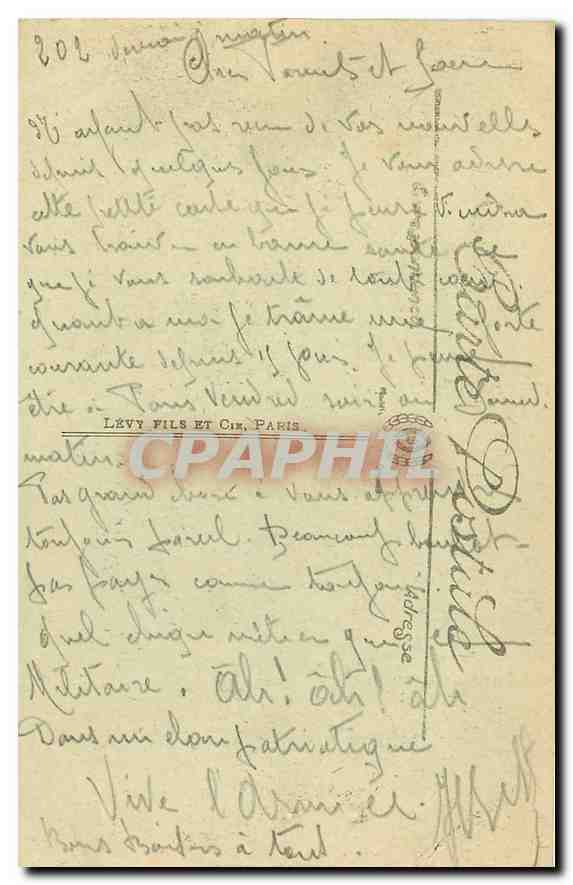 202 matin
Chers Parents et
N'ayant pas reçu de vos nouvelles
depuis quelques jours. Je vous adresse
cette petite carte que je pense
vous trouvera en bonne santé ce
que je vous souhaite de tout coeur.
Quant à moi je traine une Poste
courante depuis 15 jours. Je
être à Paris Vendredi soir ou
matin.
Pas grand chose à vous apprendre
toujours pareil. Beaucoup
pas payé comme toujours.
Quel chique métier que
Militaire. Âh! âh! âh
Dans un élan patriotique
Vive l'Armée.
Bons Baisers à tous.
Carte Postale
Correspondance
Adresse
LÉVY FILS ET CIE, PARIS
CPAPHIL